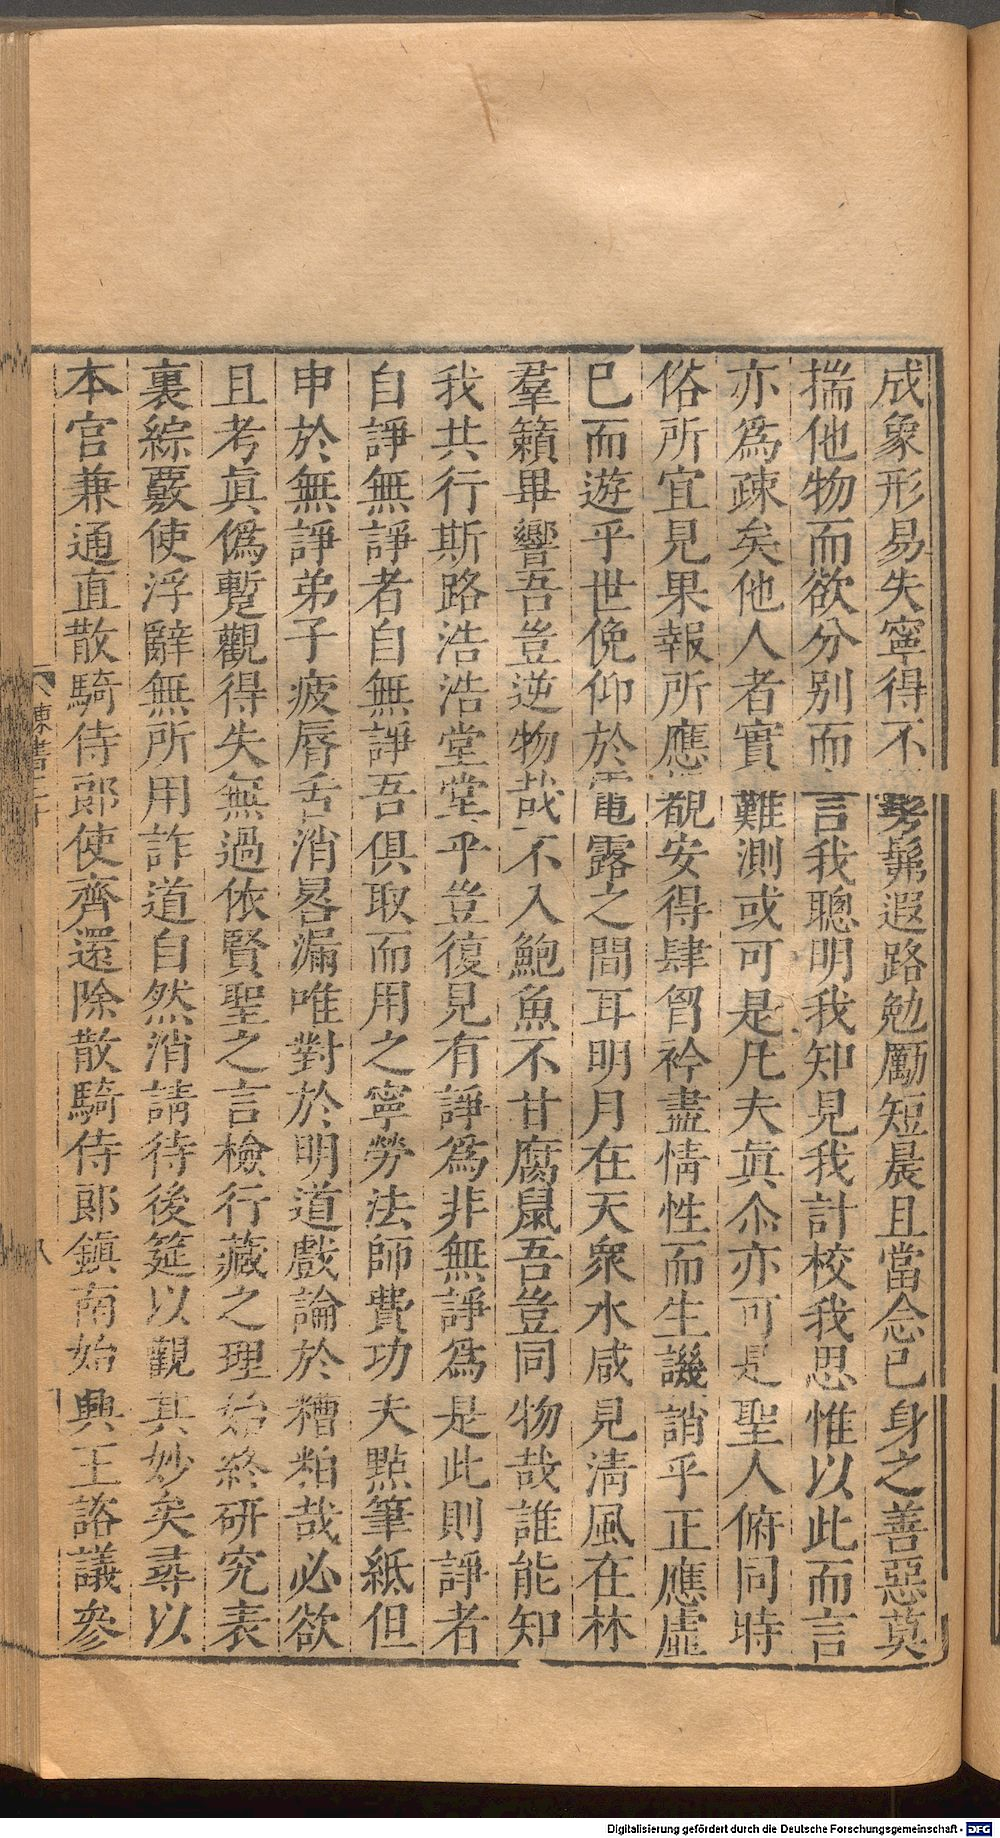 成象形易失寧得不髣髴遐路勉勵短晨且當念己身之善惡莫
揣他物而欲分別而言我聰明我知見我計校我思惟以此而言
亦為疎矣他人者實難測或可是凡夫眞尒亦可是聖人俯同時
俗所宜見果報所應覩安得肆胷衿盡情性而生譏誚乎正應虛
已而遊乎世俛仰於電露之間耳明月在天衆水咸見清風在林
羣籟畢響吾豈逆物哉不入鮑魚不甘腐鼠吾豈同物哉誰能知
我共行斯路浩浩堂堂乎豈復見有諍為非無諍為是此則諍者
自諍無諍者自無諍吾俱取而用之寧勞法師費功夫點筆紙但
申於無諍弟子疲脣舌消晷漏唯對於明道戲論於糟粕哉必欲
且考眞僞蹔觀得失無過依賢聖之言檢行藏之理始終研究表
裏綜覈使浮辭無所用詐道自然消請待後筵以觀其妙矣尋以
本官兼通直散騎侍郎使齊還除散騎侍郎鎮南始興王諮議參
陳書三十
八
Digitalisierung gefördert durch die Deutsche Forschungsgemeinschaft - DFG